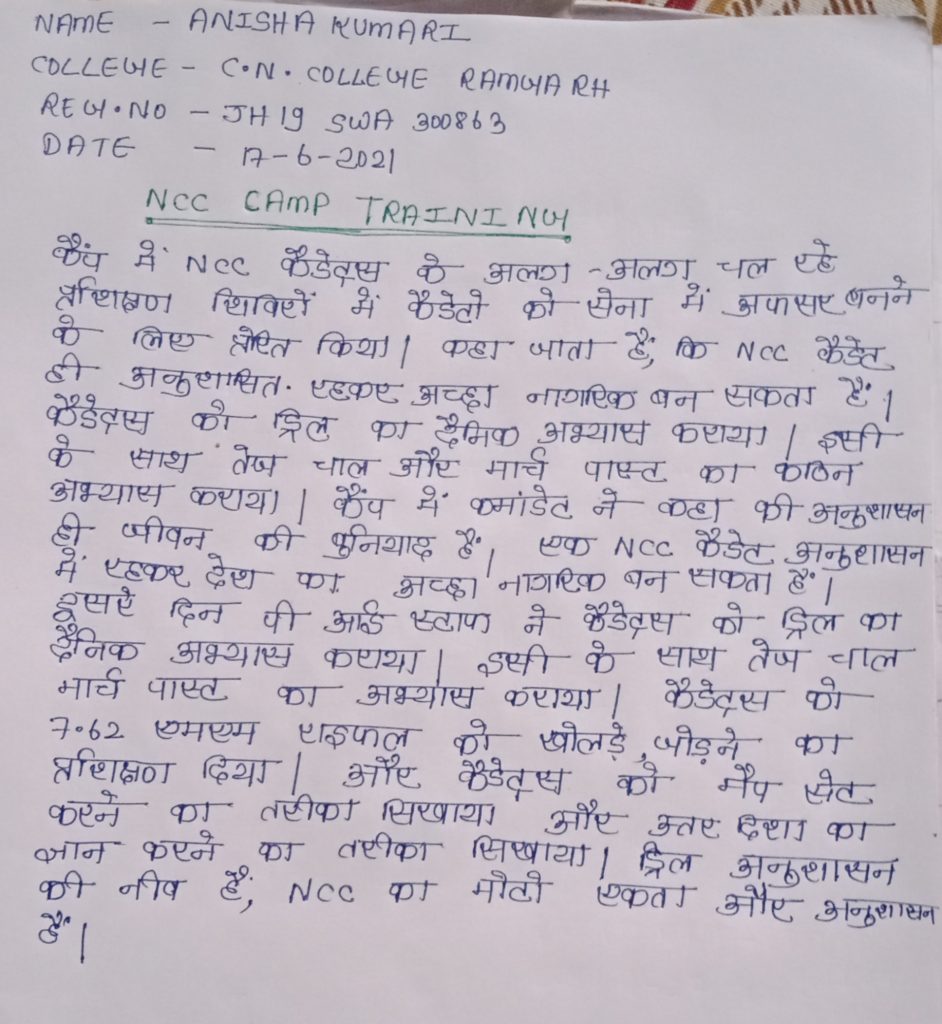 NAME - ANISHA KUMARI
COLLEGE - C.N. COLLEGE RAMGARH
REG.NO - JH19 SWA 300863
DATE - 17-6-2021
NCC CAMP TRAINING
कैंप में NCC कैडेट्स के अलग-अलग चल रहे
प्रशिक्षण शिविरों में कैडेटो को सेना में अफसर बनने
के लिए प्रेरित किया। कहा जाता हैं, कि NCC कैडेट
ही अनुशासित रहकर अच्छा नागरिक बन सकता हैं।
कैडेट्स को ड्रिल का दैनिक अभ्यास कराया। इसी
के साथ तेज चाल और मार्च पास्ट का कठिन
अभ्यास कराया। कैंप में कमांडेट ने कहा की अनुशासन
ही जीवन की बुनियाद हैं। एक NCC कैडेट अनुशासन
में रहकर देश का अच्छा नागरिक बन सकता हैं।
दूसरे दिन पी आई स्टाफ ने कैडेट्स को ड्रिल का
दैनिक अभ्यास कराया। इसी के साथ तेज चाल
मार्च पास्ट का अभ्यास कराया। कैडेट्स को
7.62 एमएम राइफल को खोलड़े, जोड़ने का
प्रशिक्षण दिया। और कैडेट्स को मैप सेट
करने का तरीका सिखाया और उतर दिशा का
ज्ञान करने का तरीका सिखाया। ड्रिल अनुशासन
की नीव हैं, NCC का मोटो एकता और अनुशासन
हैं।